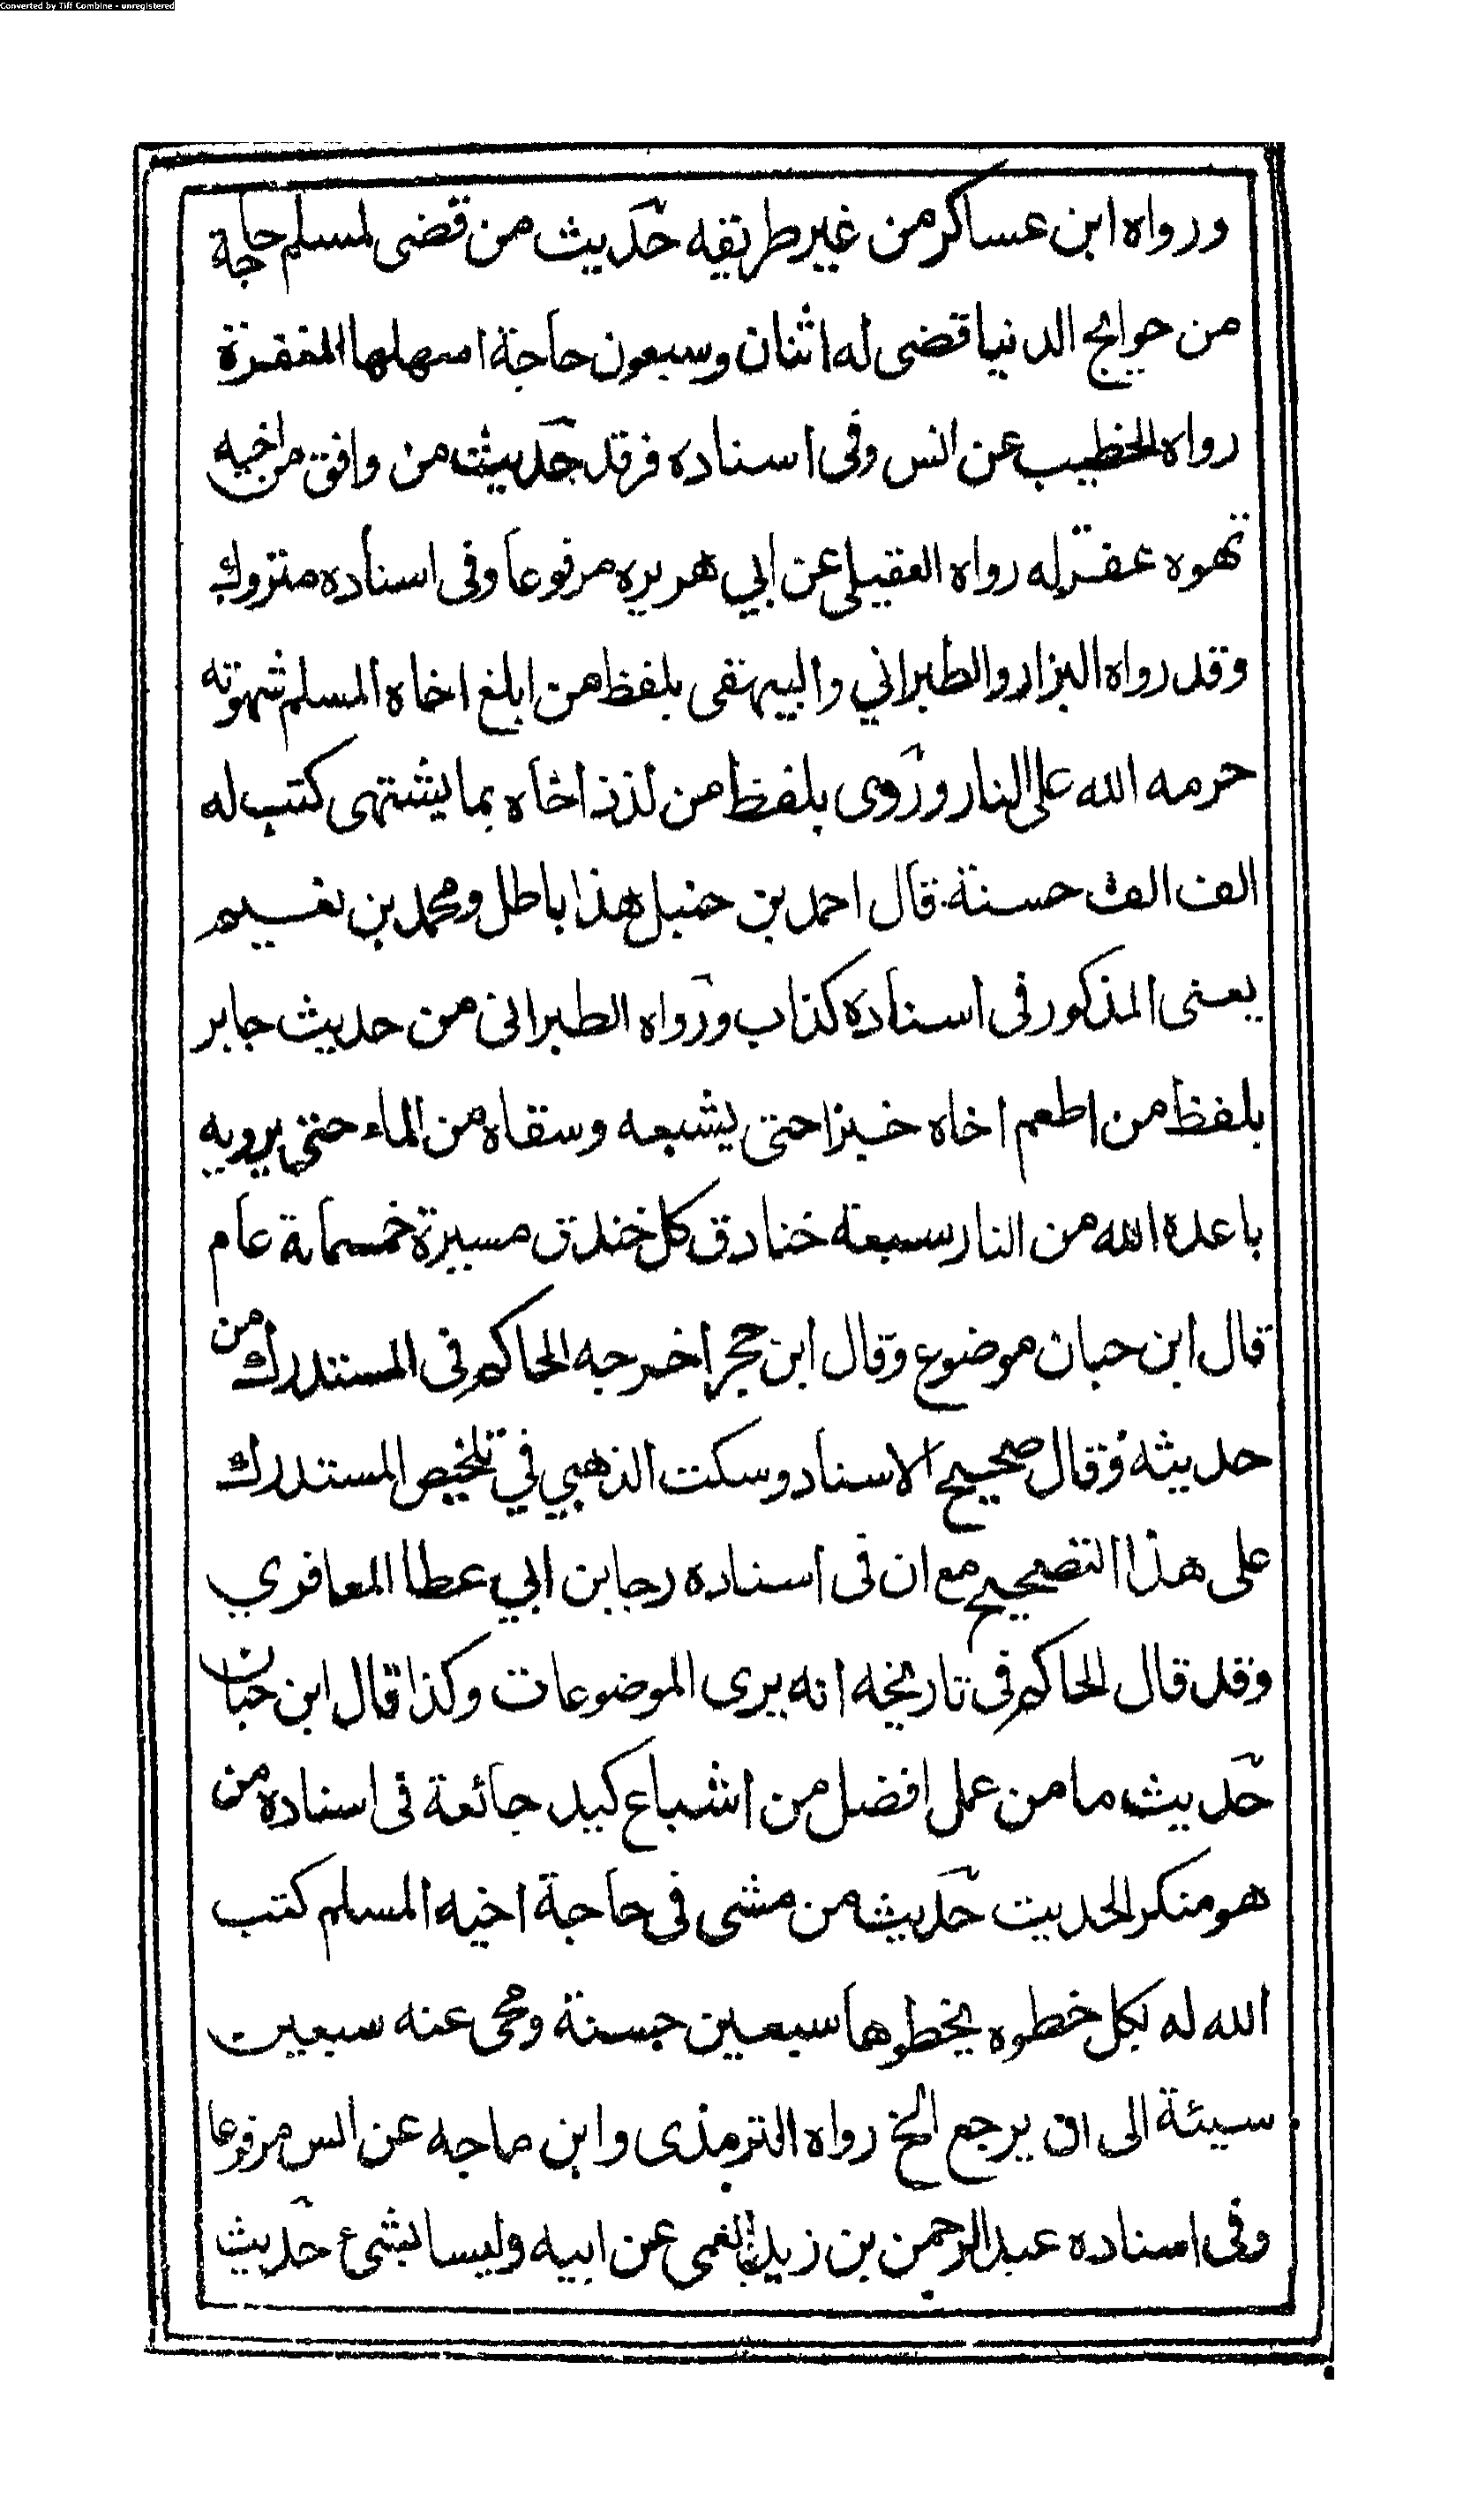 Converted by Tiff Combine - unregistered
ورواه ابن عساكر من غير طريقه حديث من قضى لمسلم حاجة
من حوايج الدنيا قضى له اثنان وسبعون حاجة اسهلها المغفرة
رواه الخطيب عن انس وفى اسناده فرقد حديث من وافق من اخيه
شهوه غفر له رواه العقيلى عن ابي هريره مرفوعا وفى اسناده متروك
وقد رواه البزار والطبراني والبيهقى بلفظ من ابلغ اخاه المسلم شهوته
حرمه الله على النار وروى بلفظ من لذذ اخاه بما يشتهى كتب له
الف الف حسنة قال احمد بن حنبل هذا باطل ومحمد بن نعيم
يعنى المذكور فى اسناده كذاب ورواه الطبرانى من حديث جابر
بلفظ من اطعم اخاه خبزا حتى يشبعه وسقاه من الماء حتى يرويه
باعده الله من النار سبعة خنادق كل خندق مسيرة خمسماية عام
قال ابن حبان موضوع وقال ابن حجر اخرجه الحاكم فى المستدرك من
حديثه وقال صحيح الاسناد وسكت الذهبي في تلخيص المستدرك
على هذا التصحيح مع ان فى اسناده رجا بن ابي عطا المعافري
وقد قال الحاكم فى تاريخه انه يرى الموضوعات وكذا قال ابن حبان
حديث ما من عمل افضل من اشباع كبد جائعة فى اسناده من
هو منكر الحديت حديث من مشى فى حاجة اخيه المسلم كتب
الله له بكل خطوه يخطوها سبعين حسنة ومحى عنه سبعين
سيئة الى ان يرجع الخ رواه الترمذى وابن ماجه عن انس مرفوعا
وفى اسناده عبد الرحمن بن زيد العمى عن ابيه وليسا بشىء حديث